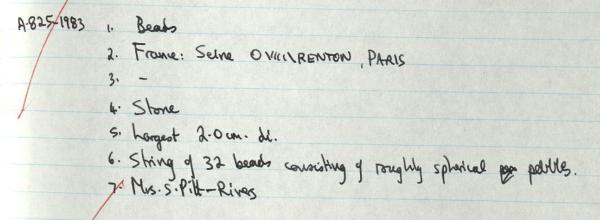 A.825-1983 1. Beads
2. France: Seine OVILL\RENTON, PARIS
3. -
4. Stone
5. Largest 2.0 cm. di.
6. String of 32 beads consisting of roughly spherical pebbles.
7. Mrs. S. Pitt-Rivers